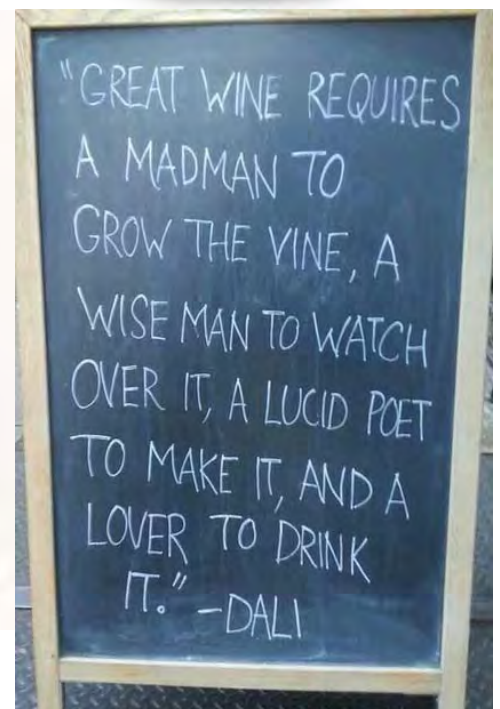 "GREAT WINE REQUIRES
A MADMAN TO
GROW THE VINE, A
WISE MAN TO WATCH
OVER IT, A LUCID POET
TO MAKE IT, AND A
LOVER TO DRINK
IT." -DALI